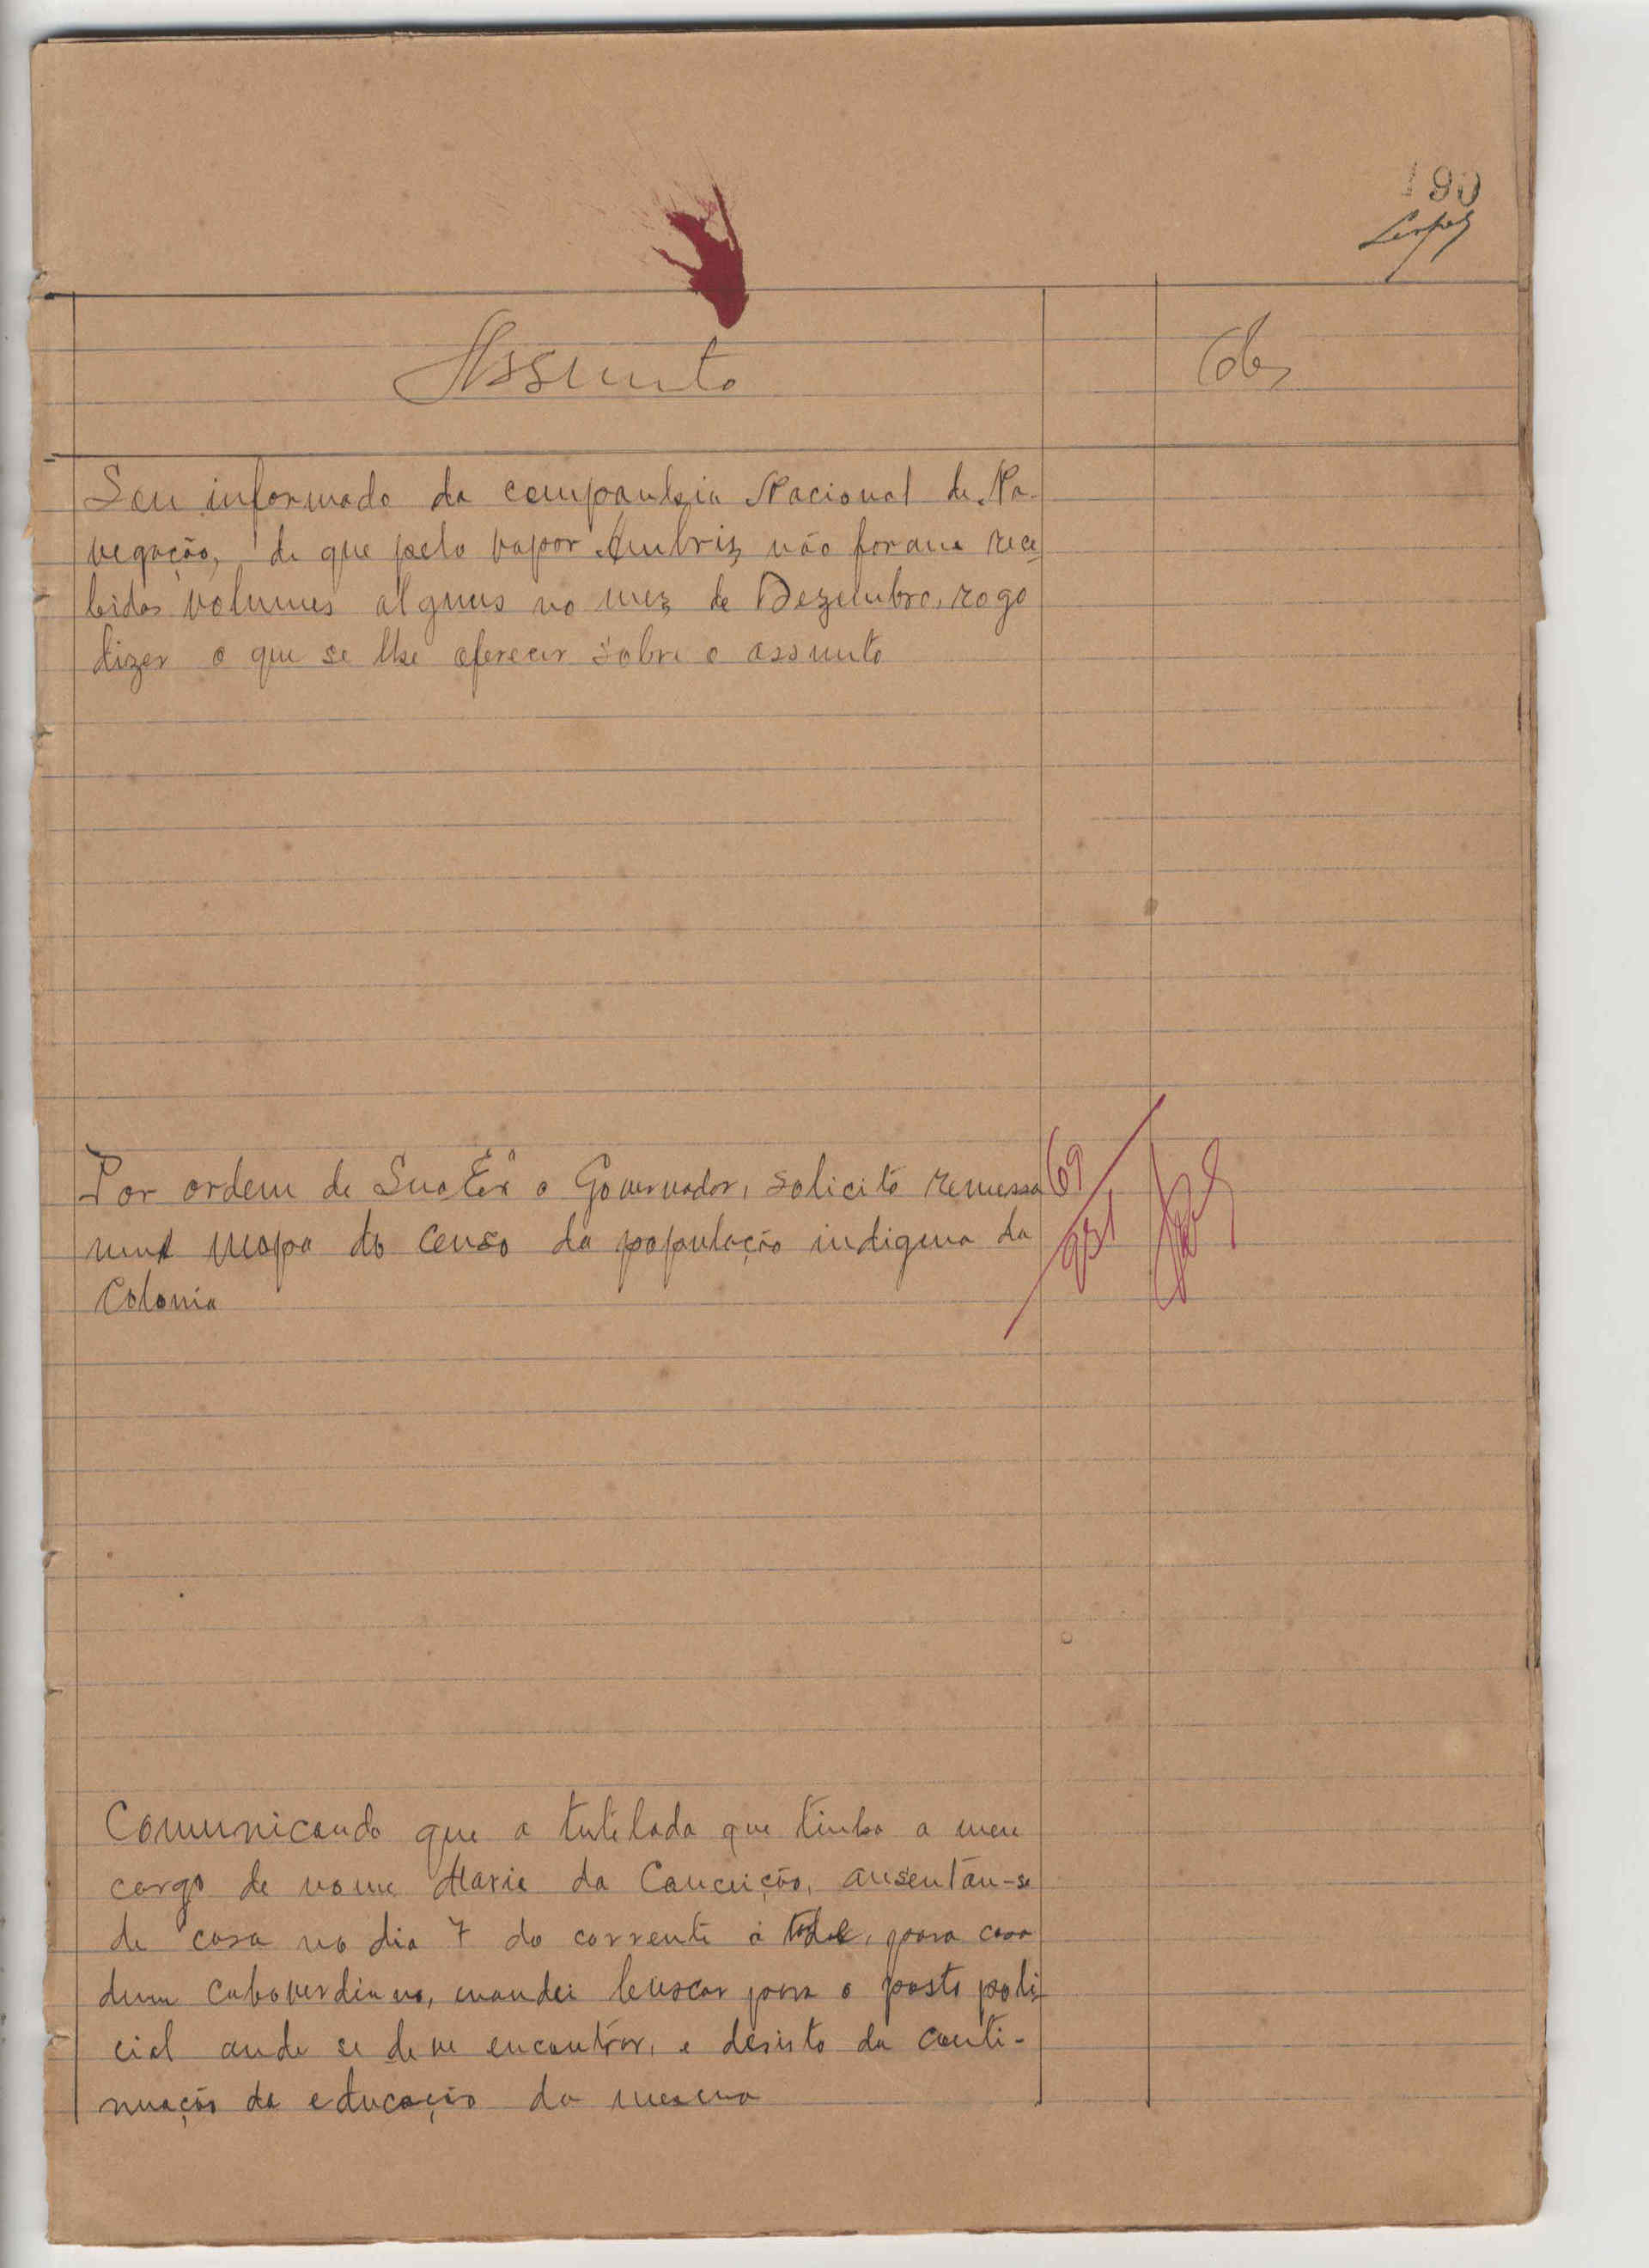 190
Lopes
Assunto
Obs
Sou informado da companhia Nacional de Na-
vegação, de que pelo vapor Ambriz não foram rece
bidos volumes alguns no mez de Dezembro, rogo
dizer o que se lhe oferecer sobre o assunto
Por ordem de Sua Exª o Governador, solicito remessa
mapa do censo da população indigena da
Colonia
69
931
Comunicando que a tutelada que tinha a meu
cargo de nome Maria da Conceição, ausentou-se
de casa no dia 7 do corrente á tarde, para casa
dum caboverdiano, mandei buscar para o posto poli
cial onde se deve encontrar, e desisto da conti-
nuação da educação da mesma